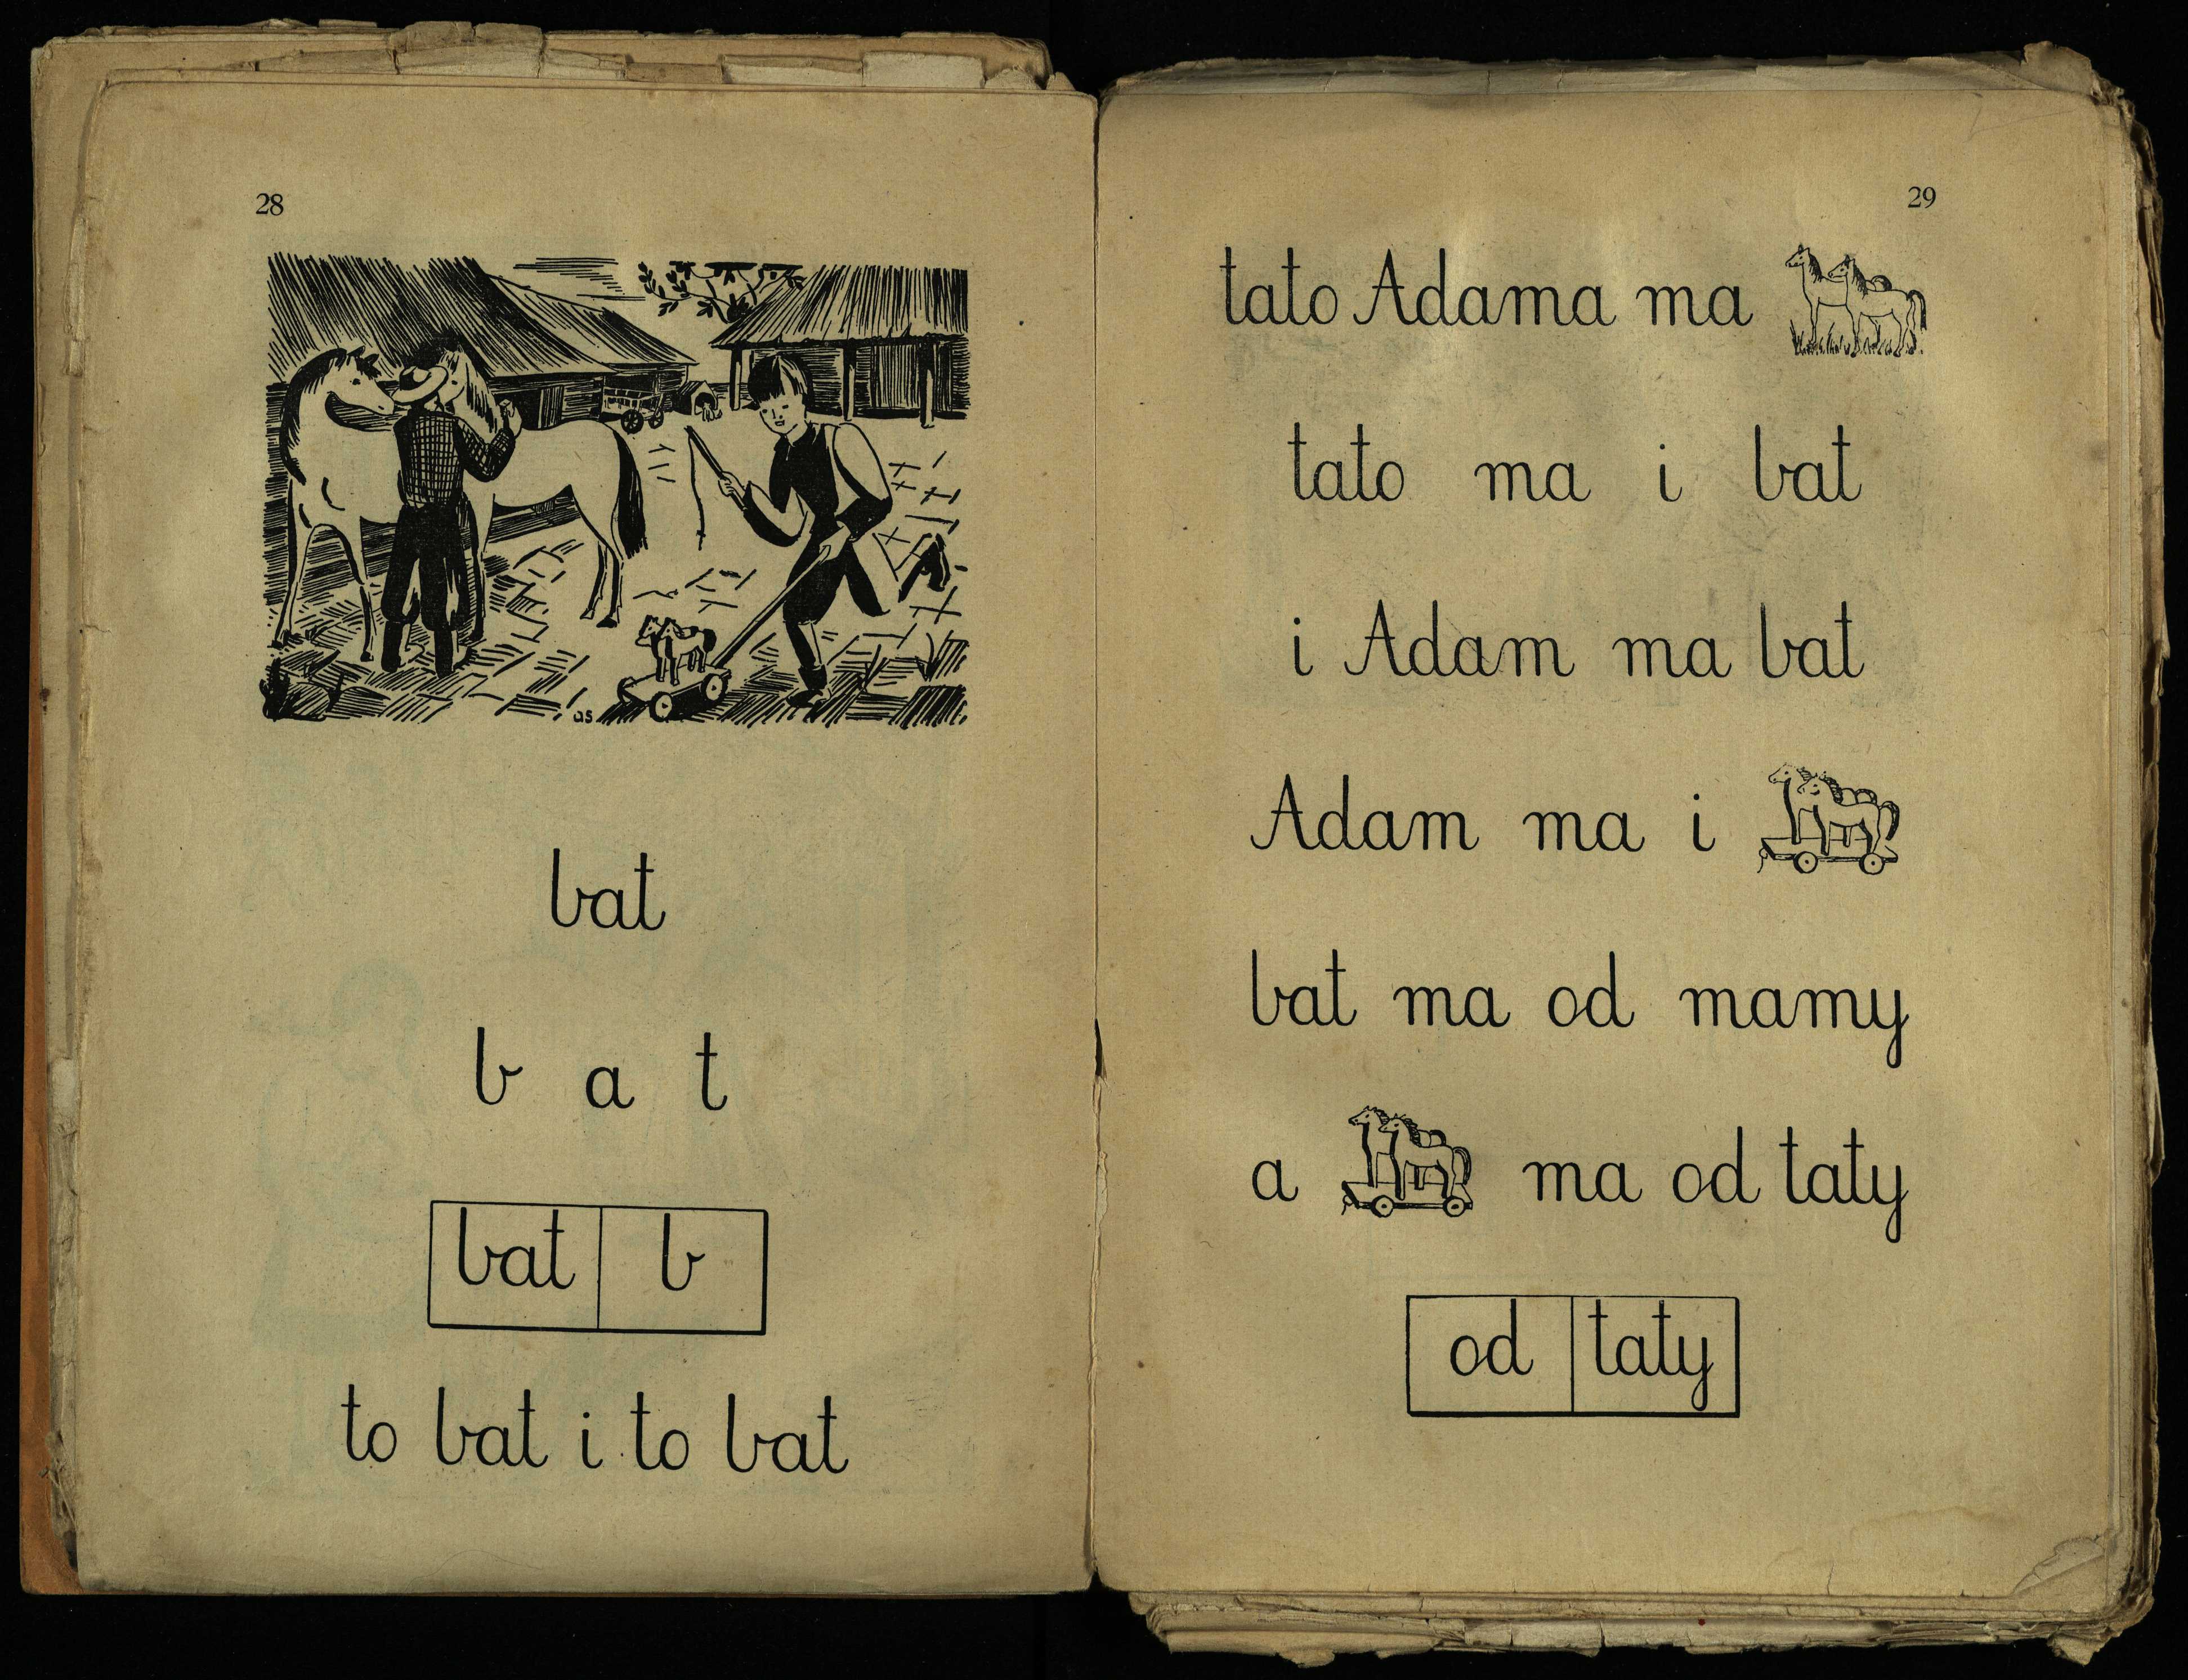 28
as
bat
b a t
bat b
to bat i to bat
29
tato Adama ma
tato ma i bat
i Adam ma bat
Adam ma i
bat ma od mamy
a ma od taty
od taty